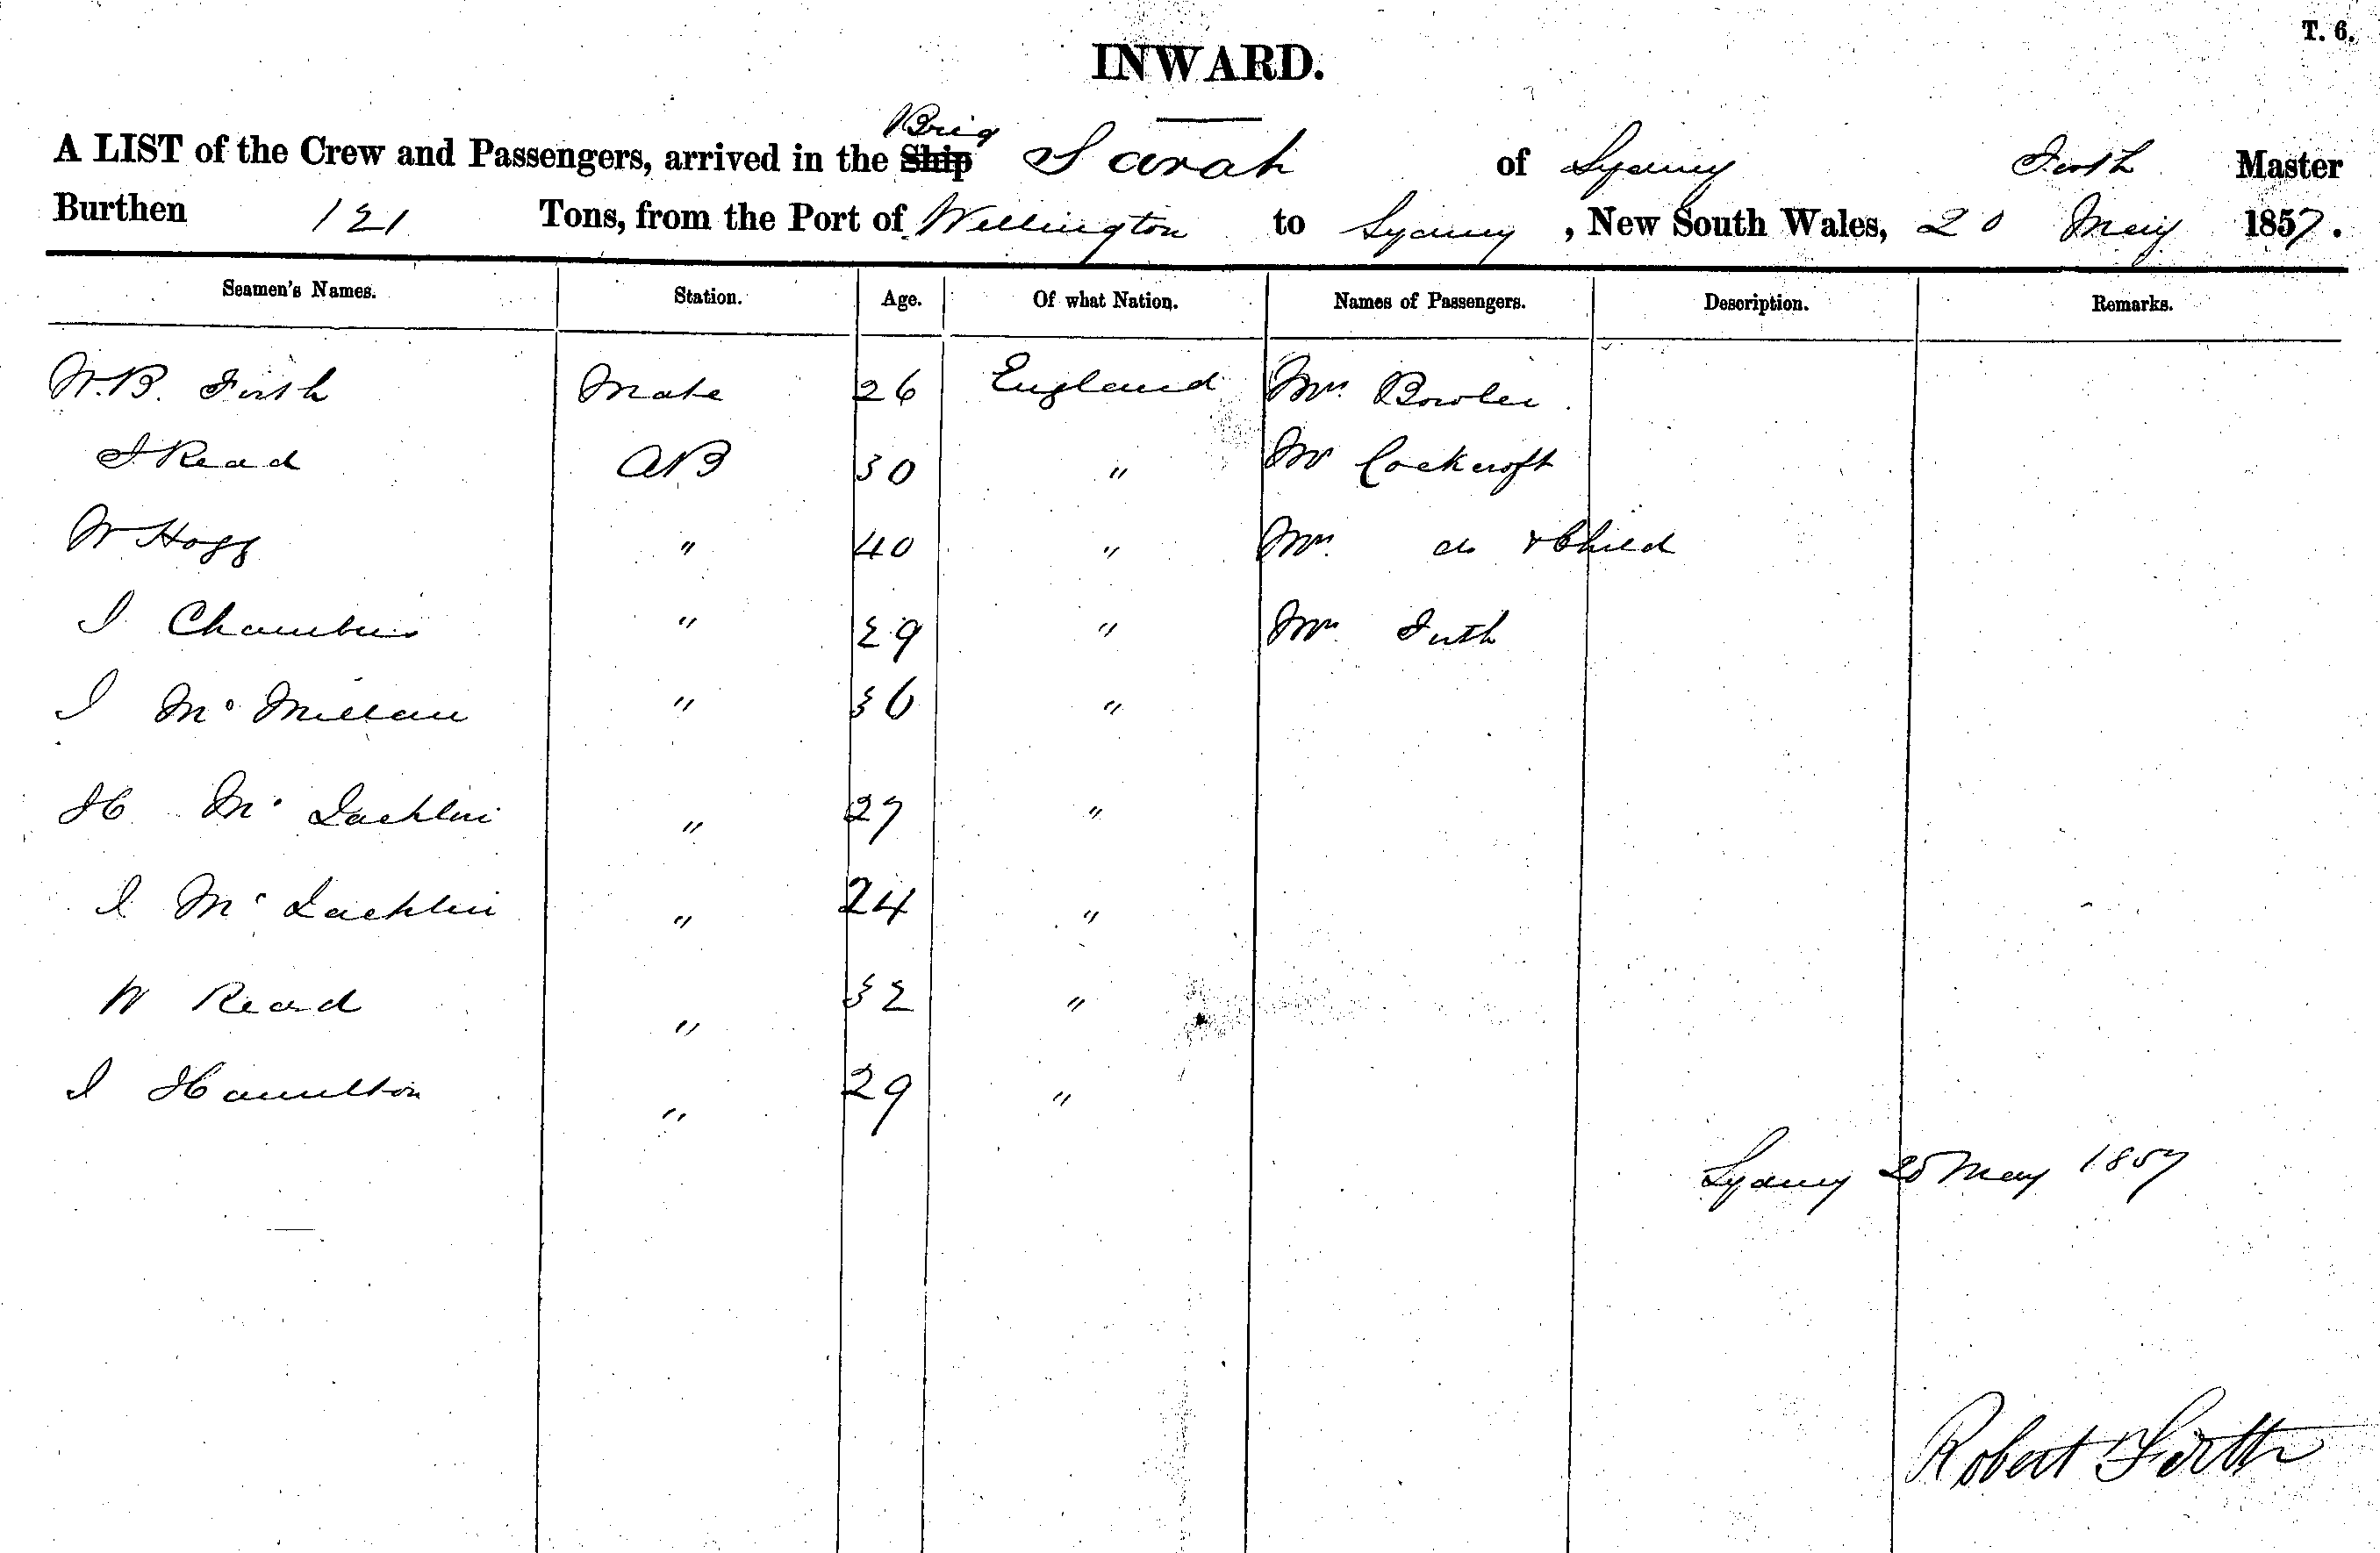 T. 6.
INWARD.
Brig
A LIST of the Crew and Passengers, arrived in the Ship Sarah of Sydney Firth Master
Burthen 121 Tons, from the Port of Wellington to Sydney, New South Wales, 20 May 1857.
Seamen's Names. Station. Age. Of what Nation. Names of Passengers. Description. Remarks.
W. B. Firth Mate 26 England Mrs. Bowler
J Read AB 30 " Mr Cockcroft
W Hogg " 40 " Mrs. do & Child
J Chambers " 29 " Mrs. Firth
J Mc Millan " 36 "
H Mc Lachlin " 27 "
J Mc Lachlin " 24 "
W Read " 32 "
J Hamilton " 29 "
Sydney 20 May 1857
Robert Firth